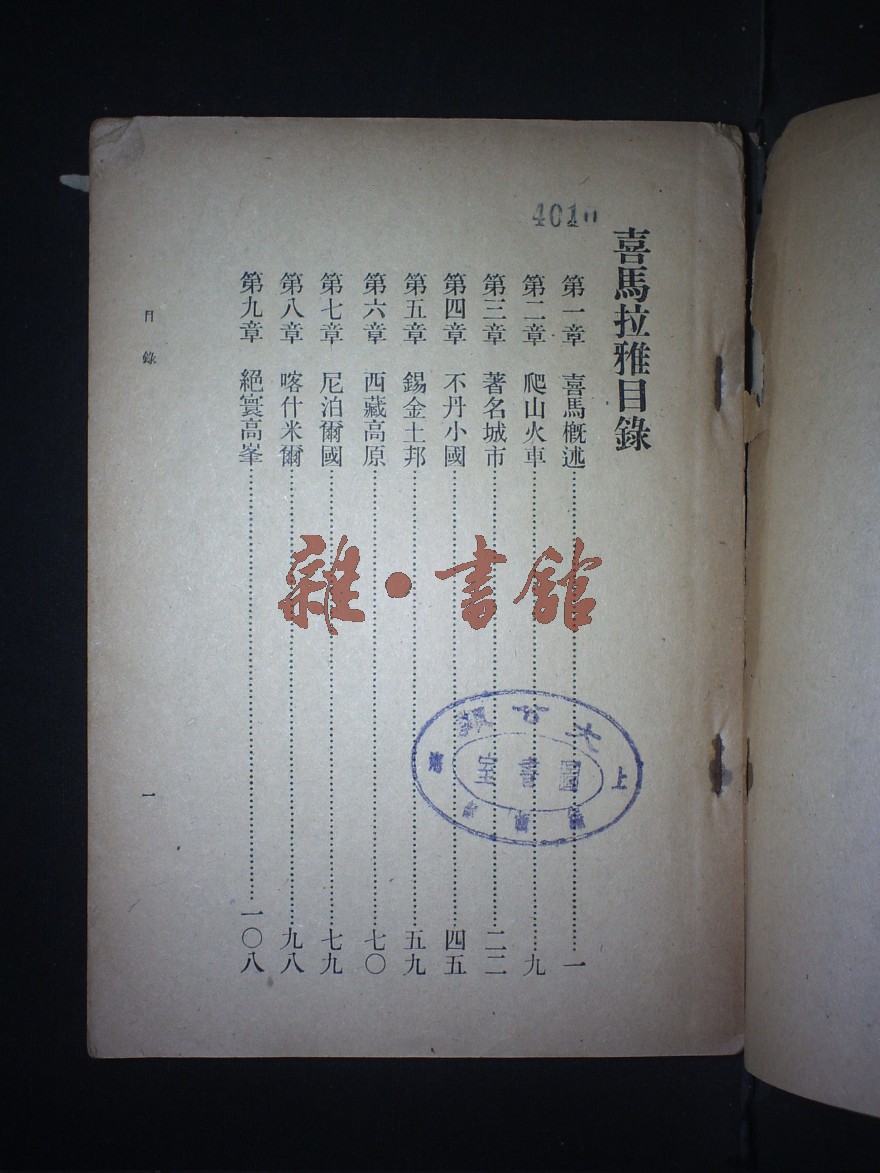 4010
喜馬拉雅目錄
第一章 喜馬概述……一
第二章 爬山火車……九
第三章 著名城市……二二
第四章 不丹小國……四五
第五章 錫金土邦……五九
第六章 西藏高原……七〇
第七章 尼泊爾國……七九
第八章 喀什米爾……九八
第九章 絕寰高峯……一〇八
目錄
一
雜·書館
大公報
圖書室
上